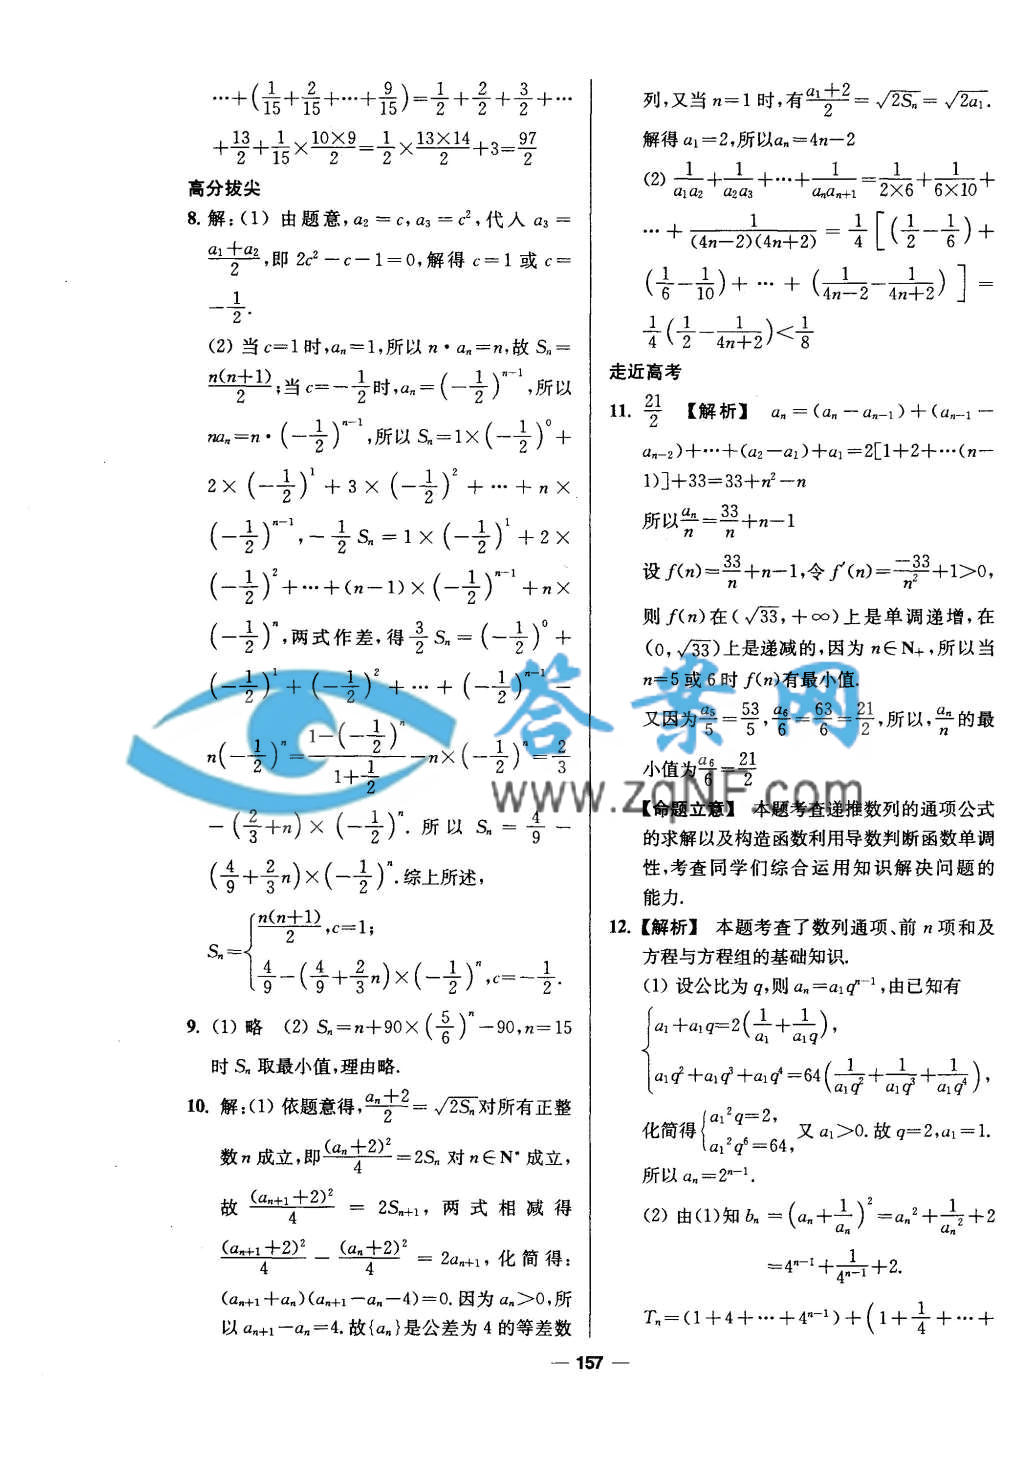 …+(1/15+2/15+…+9/15)=1/2+2/2+3/2+…
+13/2+1/15×(10×9)/2=1/2×(13×14)/2+3=97/2
高分拔尖
8. 解:(1) 由题意,a₂=c,a₃=c²,代入 a₃=
(a₁+a₂)/2,即 2c²-c-1=0,解得 c=1 或 c=
-1/2.
(2) 当c=1时,aₙ=1,所以 n·aₙ=n,故 Sₙ=
n(n+1)/2;当 c=-1/2时,aₙ=(-1/2)ⁿ⁻¹,所以
naₙ=n·(-1/2)ⁿ⁻¹,所以 Sₙ=1×(-1/2)⁰+
2×(-1/2)¹+3×(-1/2)²+…+n×
(-1/2)ⁿ⁻¹,-1/2 Sₙ=1×(-1/2)¹+2×
(-1/2)²+…+(n-1)×(-1/2)ⁿ⁻¹+n×
(-1/2)ⁿ,两式作差,得 3/2 Sₙ=(-1/2)⁰+
(-1/2)¹+(-1/2)²+…+(-1/2)ⁿ⁻¹-
n(-1/2)ⁿ=(1-(-1/2)ⁿ)/(1+1/2)-n×(-1/2)ⁿ=2/3
-(2/3+n)×(-1/2)ⁿ. 所以 Sₙ=4/9-
(4/9+2/3n)×(-1/2)ⁿ.综上所述,
Sₙ={n(n+1)/2,c=1;
4/9-(4/9+2/3n)×(-1/2)ⁿ,c=-1/2.
9. (1) 略 (2) Sₙ=n+90×(5/6)ⁿ-90,n=15
时 Sₙ 取最小值,理由略.
10. 解:(1) 依题意得,(aₙ+2)/2=√(2Sₙ)对所有正整
数 n 成立,即(aₙ+2)²/4=2Sₙ 对 n∈N* 成立,
故 (aₙ₊₁+2)²/4 = 2Sₙ₊₁,两式相减得
(aₙ₊₁+2)²/4-(aₙ+2)²/4=2aₙ₊₁,化简得:
(aₙ₊₁+aₙ)(aₙ₊₁-aₙ-4)=0.因为 aₙ>0,所
以 aₙ₊₁-aₙ=4.故{aₙ}是公差为 4 的等差数
列,又当 n=1 时,有(a₁+2)/2=√(2Sₙ)=√(2a₁).
解得 a₁=2,所以aₙ=4n-2
(2) 1/(a₁a₂)+1/(a₂a₃)+…+1/(aₙaₙ₊₁)=1/(2×6)+1/(6×10)+
…+1/((4n-2)(4n+2))=1/4[(1/2-1/6)+
(1/6-1/10)+…+(1/(4n-2)-1/(4n+2))]=
1/4(1/2-1/(4n+2))<1/8
走近高考
11. 21/2 【解析】 aₙ=(aₙ-aₙ₋₁)+(aₙ₋₁-
aₙ₋₂)+…+(a₂-a₁)+a₁=2[1+2+…(n-
1)]+33=33+n²-n
所以aₙ/n=33/n+n-1
设 f(n)=33/n+n-1,令 f′(n)=-33/n²+1>0,
则 f(n)在(√33,+∞)上是单调递增,在
(0,√33)上是递减的,因为 n∈N₊,所以当
n=5 或 6 时 f(n)有最小值.
又因为a₅/5=53/5,a₆/6=63/6=21/2,所以,aₙ/n的最
小值为a₆/6=21/2
【命题立意】 本题考查递推数列的通项公式
的求解以及构造函数利用导数判断函数单调
性,考查同学们综合运用知识解决问题的
能力.
12.【解析】 本题考查了数列通项、前 n 项和及
方程与方程组的基础知识.
(1) 设公比为 q,则 aₙ=a₁qⁿ⁻¹,由已知有
{a₁+a₁q=2(1/a₁+1/(a₁q)),
a₁q²+a₁q³+a₁q⁴=64(1/(a₁q²)+1/(a₁q³)+1/(a₁q⁴)),
化简得{a₁²q=2,
a₁²q⁶=64, 又 a₁>0.故 q=2,a₁=1.
所以 aₙ=2ⁿ⁻¹.
(2) 由(1)知 bₙ=(aₙ+1/aₙ)²=aₙ²+1/aₙ²+2
=4ⁿ⁻¹+1/4ⁿ⁻¹+2.
Tₙ=(1+4+…+4ⁿ⁻¹)+(1+1/4+…+
— 157 —
答案网
www.zqNF.com